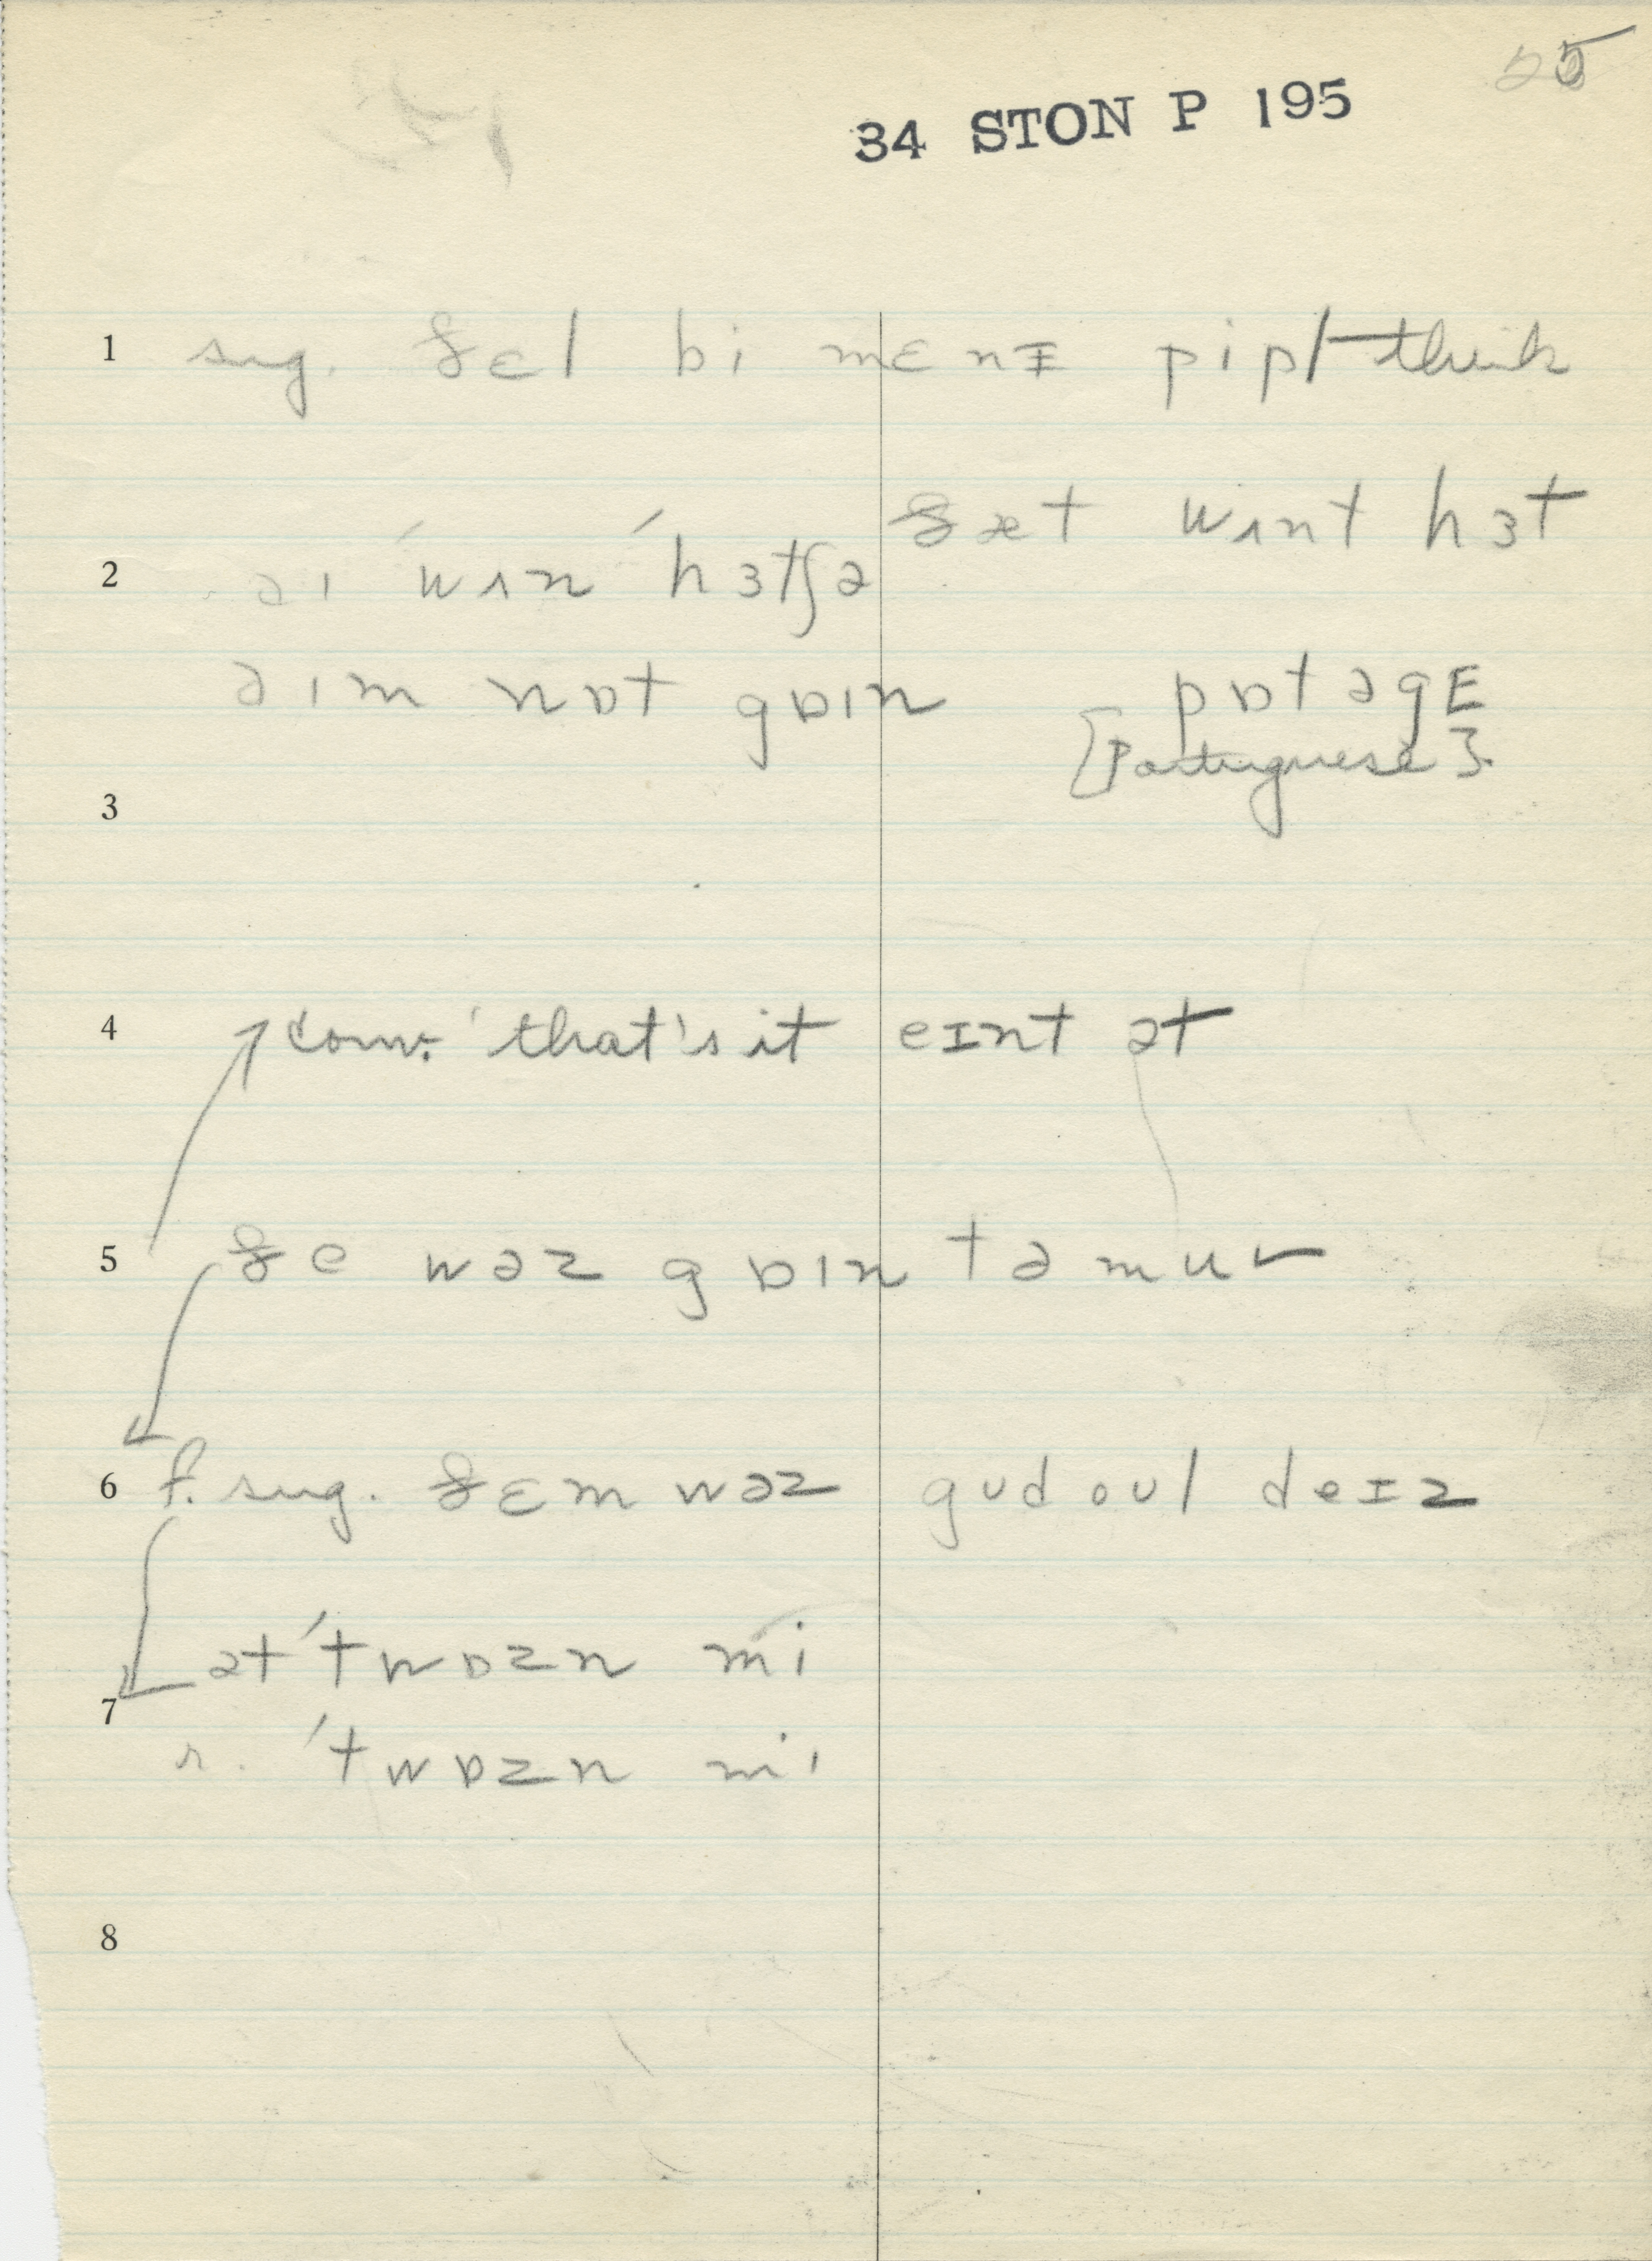 55
34 STON P 195
1 sug. ðɛl bi mɛnɪ pipl think
ðæt wʌnt hɜt
2 əɪ ˈwʌn ˈhɜtʃə
əɪm nɒt gɒɪn pɒtəgE
[Portuguese].
3
4 conv. 'that's it eɪnt ət
5 ðe wəz gɒɪn tə muv
6 f. sug. ðɛm wəz gud oul deɪz
ət ˈtwɒzn mi
7
r. ˈtwɒzn mi
8